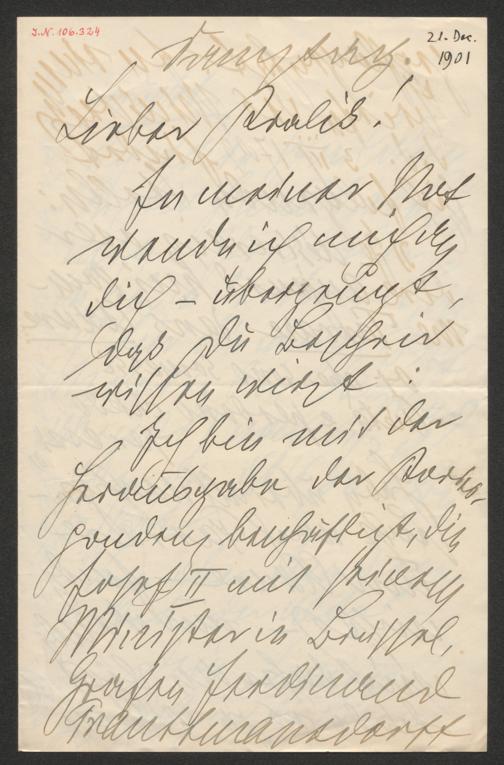 J.N. 106.324
21. Dec.
1901
Samstag.
Lieber Pralis!
In meiner Not
wende ich mich an
dich – überzeugt,
daß Du Bescheid
wissen wirst.
Ich bin mit der
Herausgabe der Korres-
pondenz beschäftigt, die
Josef II mit seinem
Minister in Brüssel,
Grafen Ferdinand
Trauttmansdorff